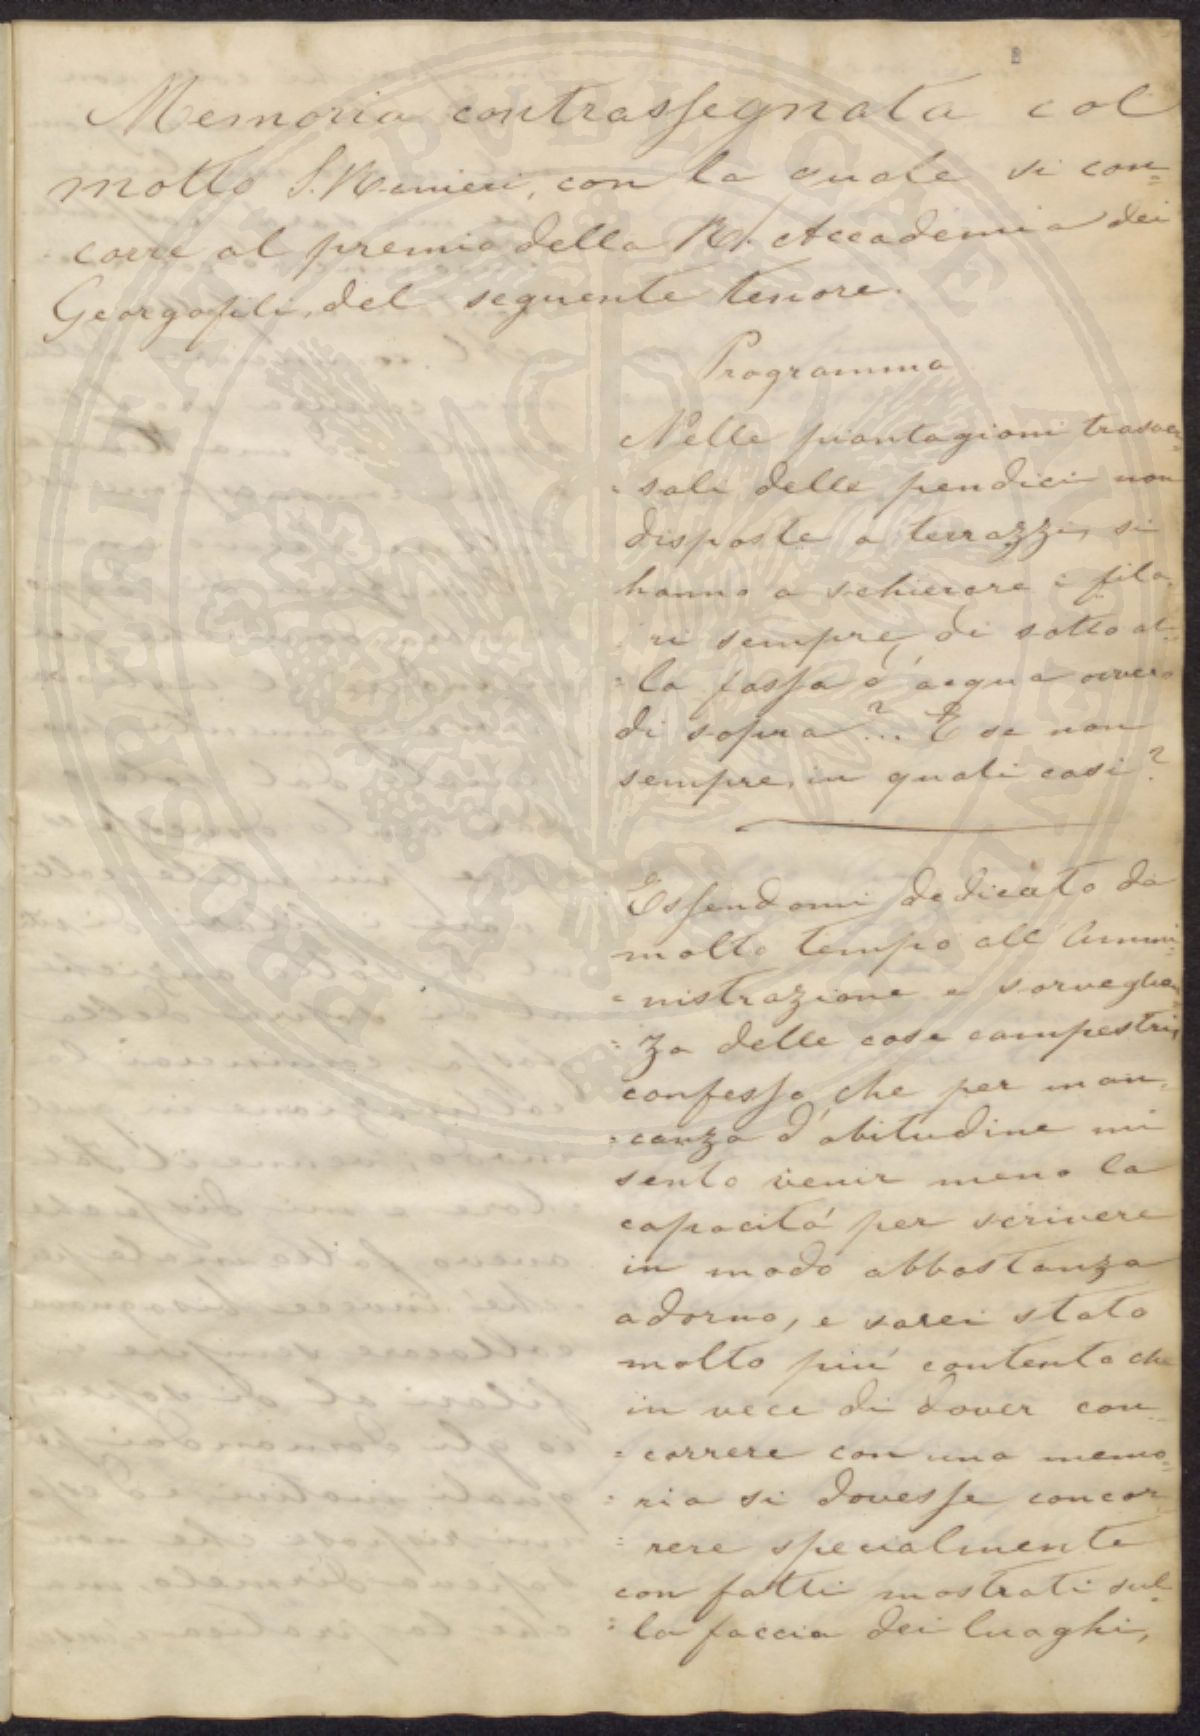 Memoria contrassegnata col
motto S. Ranieri, con la quale si con=
corre al premio della R. Accademia dei
Georgofili, del seguente tenore.
Programma
Nelle piantagioni trasver=
=sali delle pendici non
disposte a terrazzi, si
hanno a schierare i fila=
ri sempre, di sotto al=
=la fossa d'acqua ovvero
di sopra?... E se non
sempre, in quali casi?
Essendomi dedicato da
molto tempo all'Ammi=
=nistrazione e sorveglian=
=za delle cose campestri,
confesso, che per man=
=canza d'abitudine mi
sento venir meno la
capacitá per scrivere
in modo abbastanza
adorno, e sarei stato
molto piú contento che
in vece di dover con=
=correre con una memo=
=ria si dovesse concor=
=rere specialmente
con fatti mostrati sul=
=la faccia dei luoghi,
PROSPERITATI PUBLICAE AUGENDAE